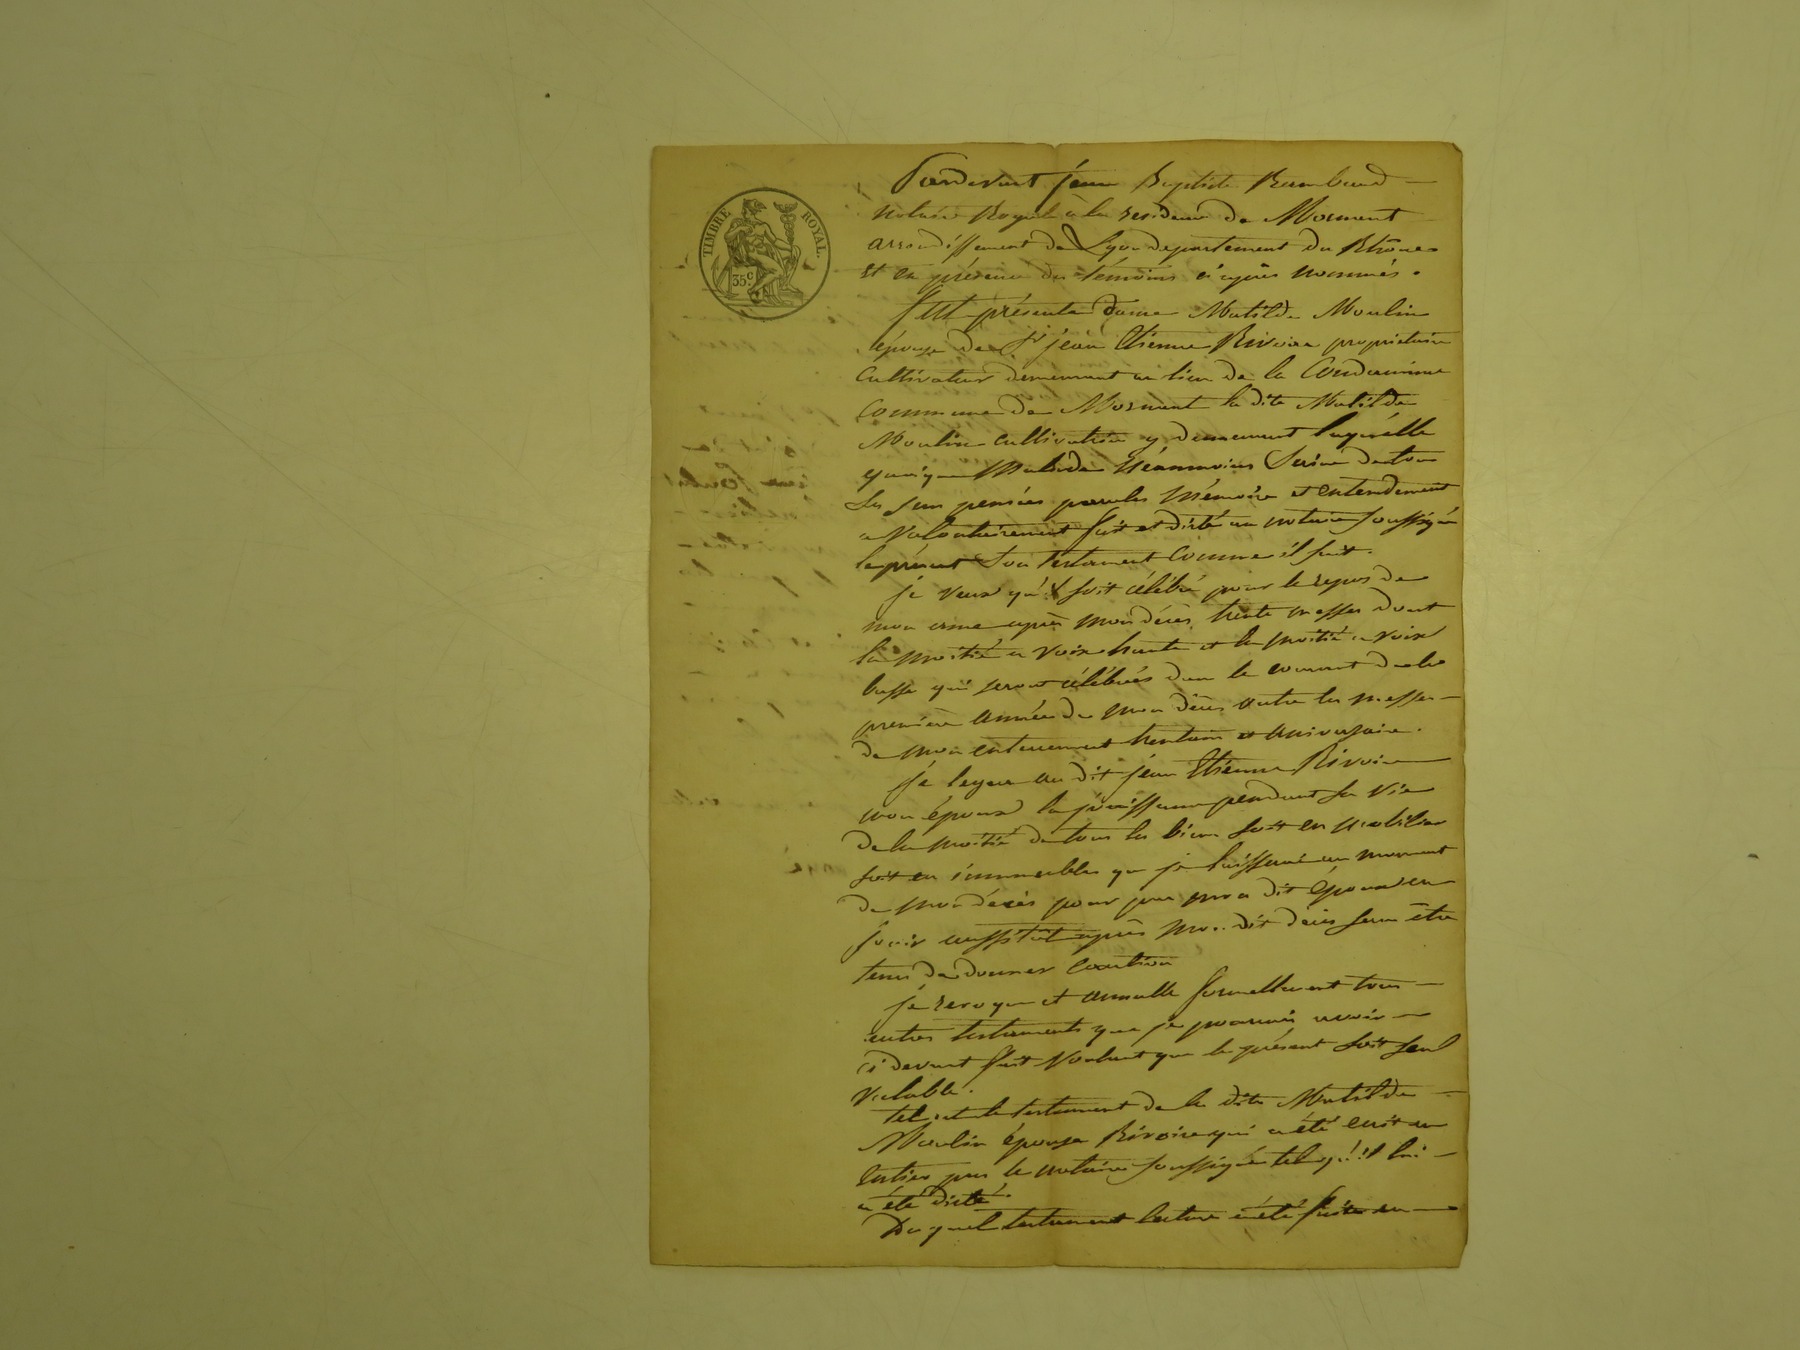 TIMBRE ROYAL.
35c.
Pardevant jean Baptiste Rambaud
notaire Royal à la residence de Mornent
arrondissement de Lyon departement du Rhône
et en présence des témoins ci après nommés.
fut présente dame Matilde Moulin
épouse de Sr jean Etienne Rivoire propriétaire
Cultivateur demeurant au lieu de la Condamine
Commune de Mornent la dite Matilde
Moulin cultivatrice y demeurant laquelle
quoique malade néanmoins saine de tous
ses sens pensées paroles mémoire et entendement
a volontairement fait et dicté au notaire soussigné
le présent son testament comme il suit.
je veux qu'il soit célébré pour le repos de
mon ame après mon décès trente messes dont
la moitié a voix haute et la moitié a voix
basse qui seront célébrées dans le courant de la
première année de mon décès outre les messes
de mon enterrement trentain et aniversaire.
je legue au dit jean Etienne Rivoire
mon époux la jouissance pendant sa vie
de la moitié de tous les biens soit en mobilier
soit en immeubles que je laisserai au moment
de mon décès pour par mon dit époux en
jouir aussitôt après mon dit décès sans être
tenu de donner caution
je revoque et annulle formellement tous
autres testaments que je pourrais avoir
ci devant fait voulant que le présent soit seul
valable.
tel est le testament de la dite Matilde
Moulin épouse Rivoire qui a été écrit en
entier par le notaire soussigné tel qu'il lui
a été dicté.
Du quel testament lecture a été faite en